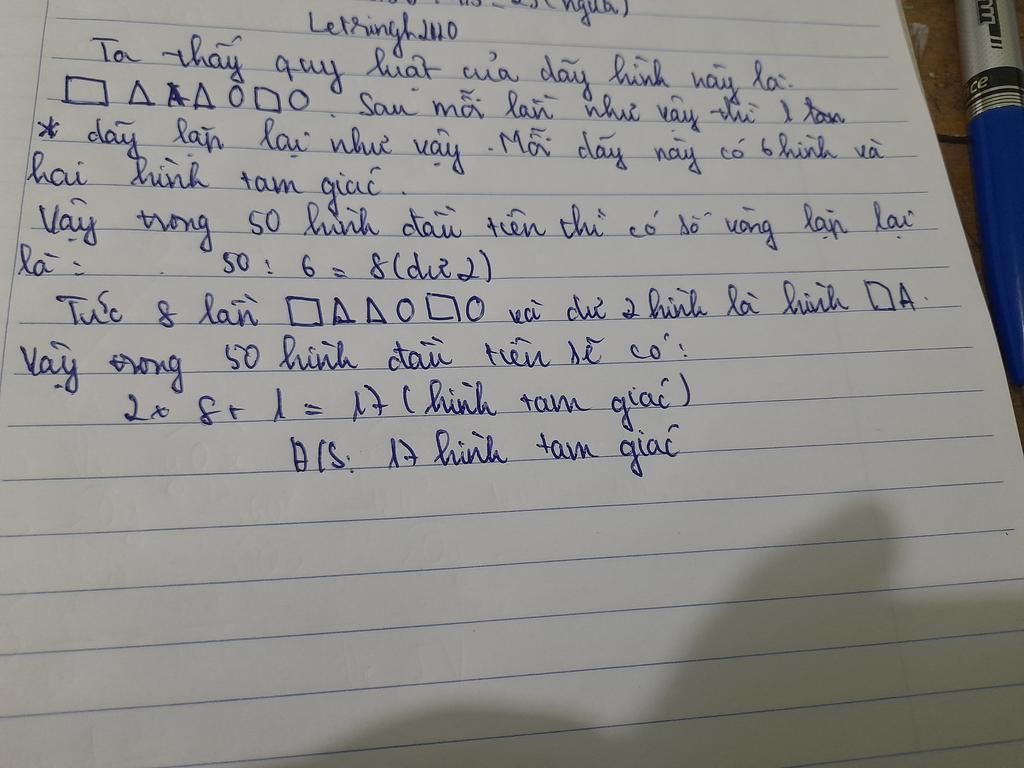 (ngựa)
Letringh2110
Ta thấy quy luật của dãy hình này là:
□ △ △ O □ O. Sau mỗi lần như vậy thì 1 lần
* dãy lặp lại như vậy. Mỗi dãy này có 6 hình và
hai hình tam giác.
Vậy trong 50 hình đầu tiên thì có số vòng lặp lại
là: 50 : 6 = 8 (dư 2)
Tức 8 lần □ △ △ O □ O và dư 2 hình là hình □ △.
Vậy trong 50 hình đầu tiên sẽ có:
2 x 8 + 1 = 17 (hình tam giác)
Đ/S: 17 hình tam giác